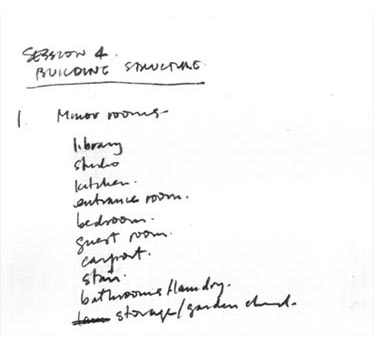 SESSION 4.
BUILDING STRUCTURE
1. Minor rooms-
library
studio
kitchen.
entrance room.
bedroom.
guest room.
carport.
stair.
bathrooms/laundry.
storage/garden